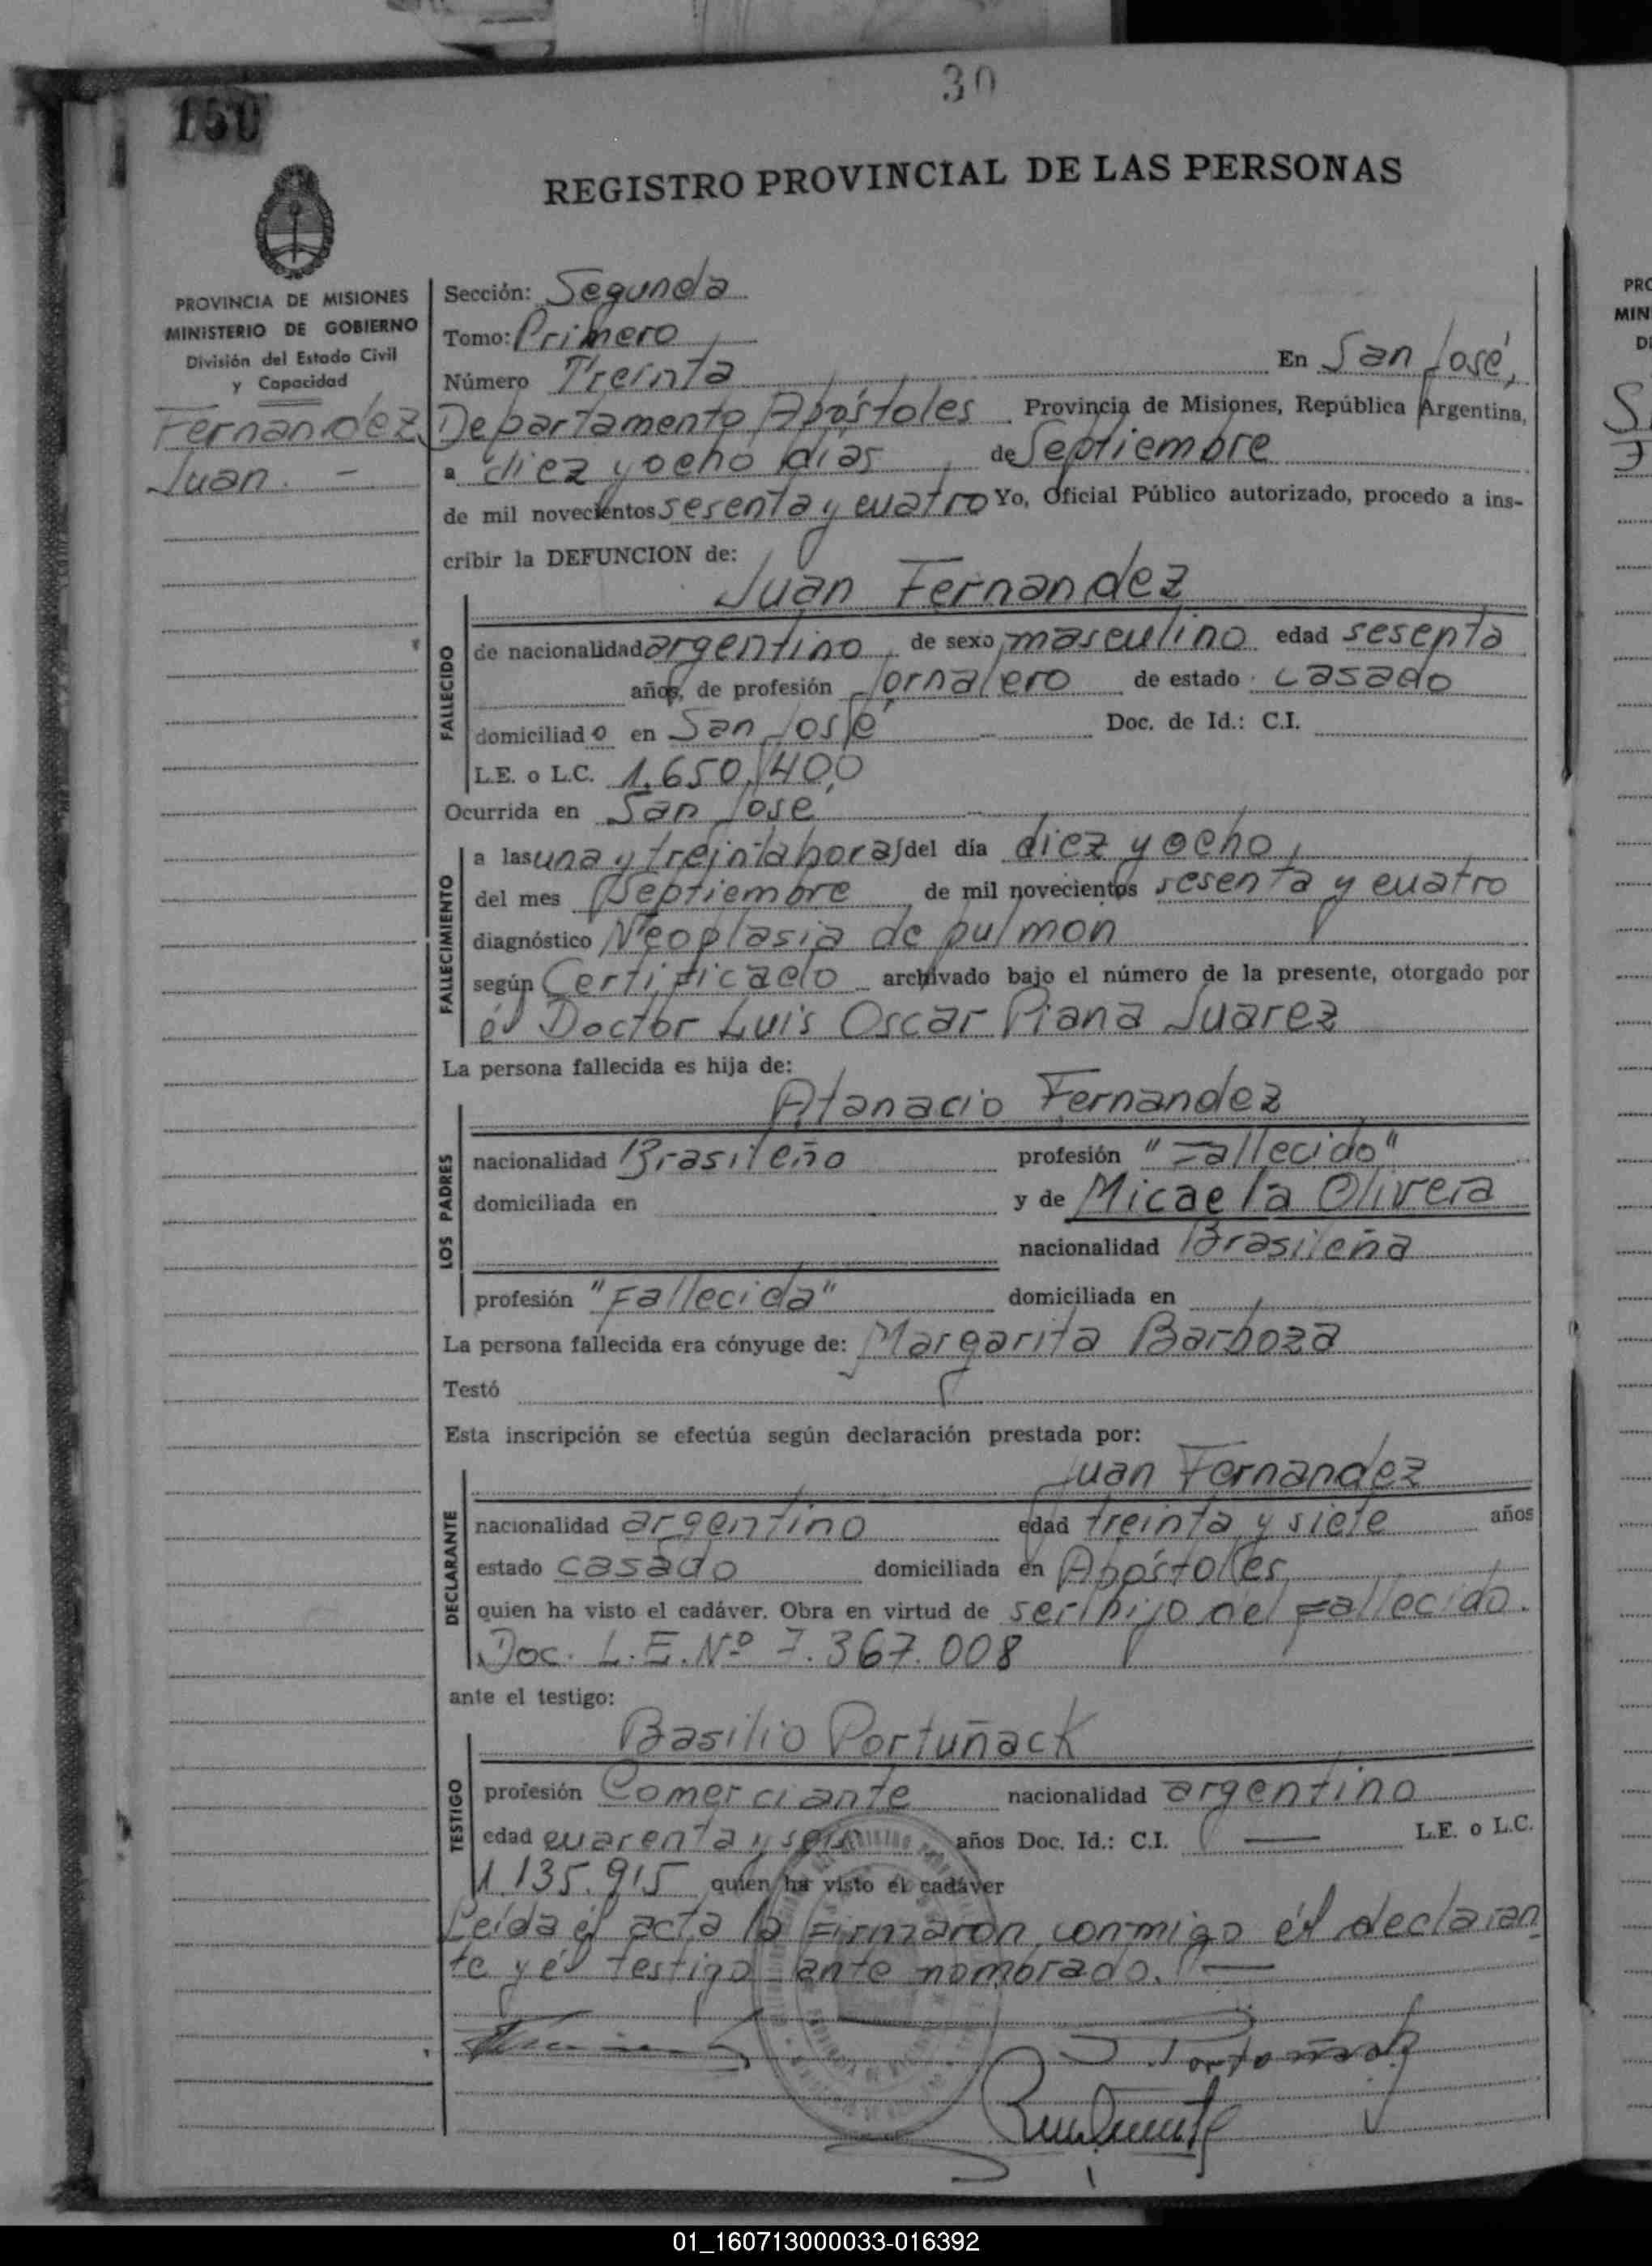 30
150
REGISTRO PROVINCIAL DE LAS PERSONAS
PROVINCIA DE MISIONES
MINISTERIO DE GOBIERNO
División del Estado Civil
y Capacidad
Fernandez,
Juan. -
Sección: Segunda
Tomo: Primero
Número Treinta En San José,
Departamento Apóstoles Provincia de Misiones, República Argentina,
a diez y ocho días de Septiembre
de mil novecientos sesenta y cuatro Yo, Oficial Público autorizado, procedo a ins-
cribir la DEFUNCION de:
Juan Fernandez
FALLECIDO
de nacionalidad argentino, de sexo masculino edad sesenta
años, de profesión Jornalero de estado casado
domiciliado en San José Doc. de Id.: C.I.
L.E. o L.C. 1.650.400
Ocurrida en San José
FALLECIMIENTO
a las una y treinta horas del día diez y ocho,
del mes Septiembre de mil novecientos sesenta y cuatro
diagnóstico Neoplasia de pulmon
según Certificado archivado bajo el número de la presente, otorgado por
él Doctor Luis Oscar Piana Juarez
La persona fallecida es hija de:
Atanacio Fernandez
LOS PADRES
nacionalidad Brasileño profesión "Fallecido"
domiciliada en y de Micaela Olivera
nacionalidad Brasileña
profesión "Fallecida" domiciliada en
La persona fallecida era cónyuge de: Margarita Barboza
Testó
Esta inscripción se efectúa según declaración prestada por:
Juan Fernandez
DECLARANTE
nacionalidad argentino edad treinta y siete años
estado casado domiciliada en Apóstoles,
quien ha visto el cadáver. Obra en virtud de ser hijo del fallecido.
Doc. L.E. Nº 7.367.008
ante el testigo:
Basilio Portuñack
TESTIGO
profesión Comerciante nacionalidad argentino
edad cuarenta y seis años Doc. Id.: C.I. — L.E. o L.C.
1.135.915 quien ha visto el cadáver
Leída él acta la firmaron conmigo él declaran
te y él testigo ante nombrado. —
01_160713000033-016392